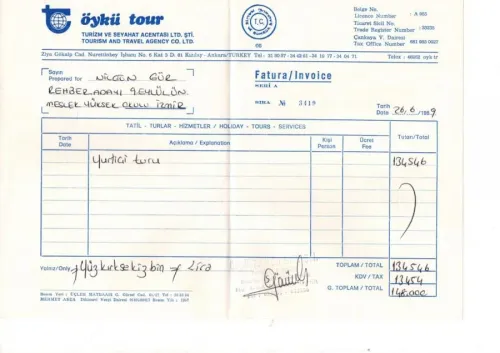 öykü tour
TURİZM VE SEYAHAT ACENTASI LTD. ŞTİ.
TOURISM AND TRAVEL AGENCY CO. LTD.
T.C.
Belge No.
Licence Number : A 693
Ticaret Sicil No.
Trade Register Number :
Çankaya V. Dairesi
Tax Office Number
Ziya Gökalp Cad. No. 6 Kat 3 D. 81 Kızılay - Ankara/TURKEY Tel :
Sayın
Prepared for NİLGÜN GÜR
REHBER ADAYI 9 EYLÜL ÜN.
MESLEK YÜKSEK OKULU İZMİR
Fatura/Invoice
SERİ A
SIRA № 3419
Tarih
Date 26.6.1989
TATİL - TURLAR - HİZMETLER / HOLIDAY - TOURS - SERVICES
Tarih
Date
Açıklama / Explanation
Kişi
Person
Ücret
Fee
Tutarı/Total
Yurtiçi turu
134546
Yalnız/Only Yüzkırksekizbin Lira
TOPLAM / TOTAL 134546
KDV / TAX 13454
G. TOPLAM / TOTAL 148.000